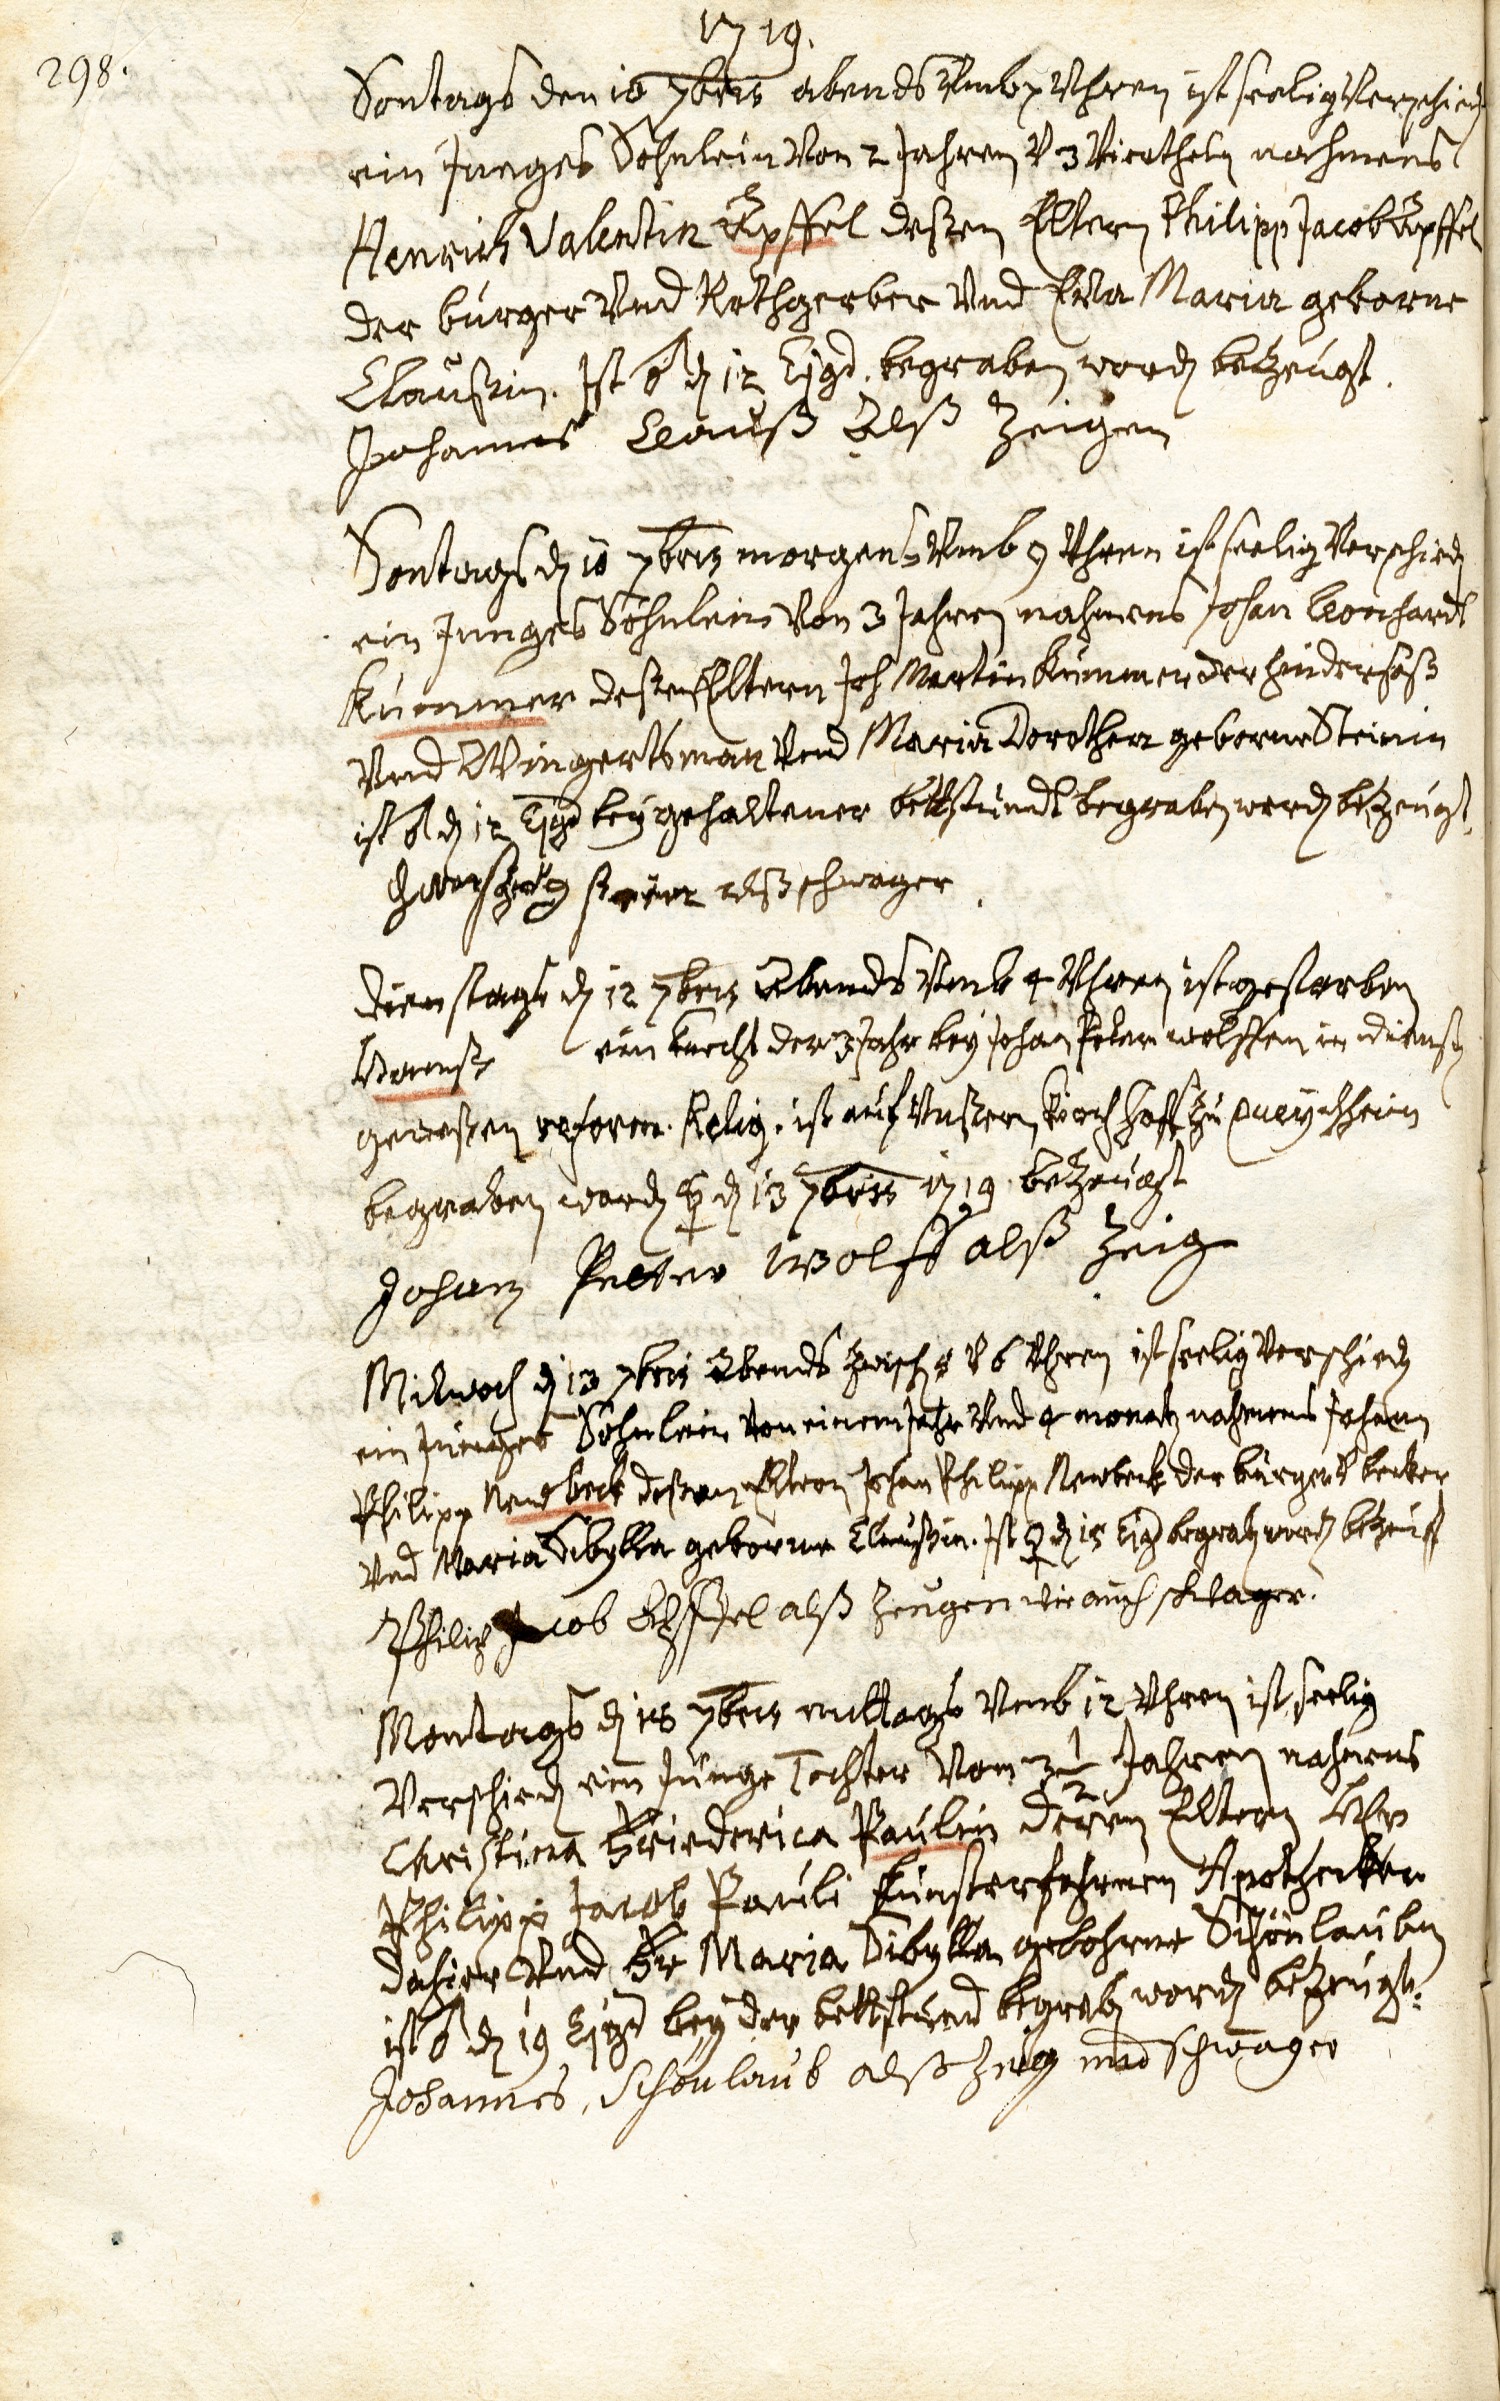 1719.
298.
Sontags den 10 7bris abends Umb 7 Uhren ist seelig Verschied
ein Junges Söhnlein Von 2 Jahren V 3 Viertheln nahmens
Henrich Valentin Öpffel deßen Eltern Philipp Jacob Öpffel
der burger Und Rothgerber Und Eva Maria geborne
Claußin. Ist ♂ d 12 Ejqd. begraben word betzeugt.
Johannes Clauß Alß Zeigen
Sontags d 10 7bris morgens Umb 9 Uhren ist seelig Verschied
ein Junges Söhnlein Von 3 Jahren nahmens Johan Leonhardt
Kummer deßen Eltern Joh Martin Kummer der hindersaß
Und Wingertsman Und Maria Dorothea geborne Steinin
ist ♂ d 12 Ejqd bey gehaltener bettstundt begraben word betzeugt
alß schwager
Dienstags d 12 7bris Abends Umb 4 Uhren ist gestorben
ein knecht der 3 Jahr bey Johan Peter wolffen in dienst
geweßen reform. Relig. ist auf Unßern Kirchhoff zu Queychheim
begraben word ☿ d 13 7bris 1719 betzeugt
Johan Petter Wolff alß Zeig
Mitwoch d 13 7bris Abends zwisch 5 V 6 Uhren ist seelig Verschied
ein Junges Söhnlein Von einem Jahr Und 4 monath nahmens Johann
Philipp Newbeck deßen Eltern Johan Philipp Newbeck der burger V becker
Und Maria Sibylla geborne Claußin. Ist ♀ d 15 Ejqd begrab word betzeugt
Philip Jacob Öpffel alß Zeugen wie auch schwager.
Montags d 18 7bris mittags Umb 12 Uhren ist seelig
Verschied ein Junge Tochter Von 3 1/2 Jahren nahmens
Christina Friederica Paulin deren Eltern Hr
Philipp Jacob Pauli kunsterfahrnen Apothecker
dahier Und Fr Maria Sibylla gebohrne Schönlaubin
ist ♂ d 19 Ejqd bey der bettstund begrab word betzeugt:
Johannes Schönlaub alß Zeig und schwager